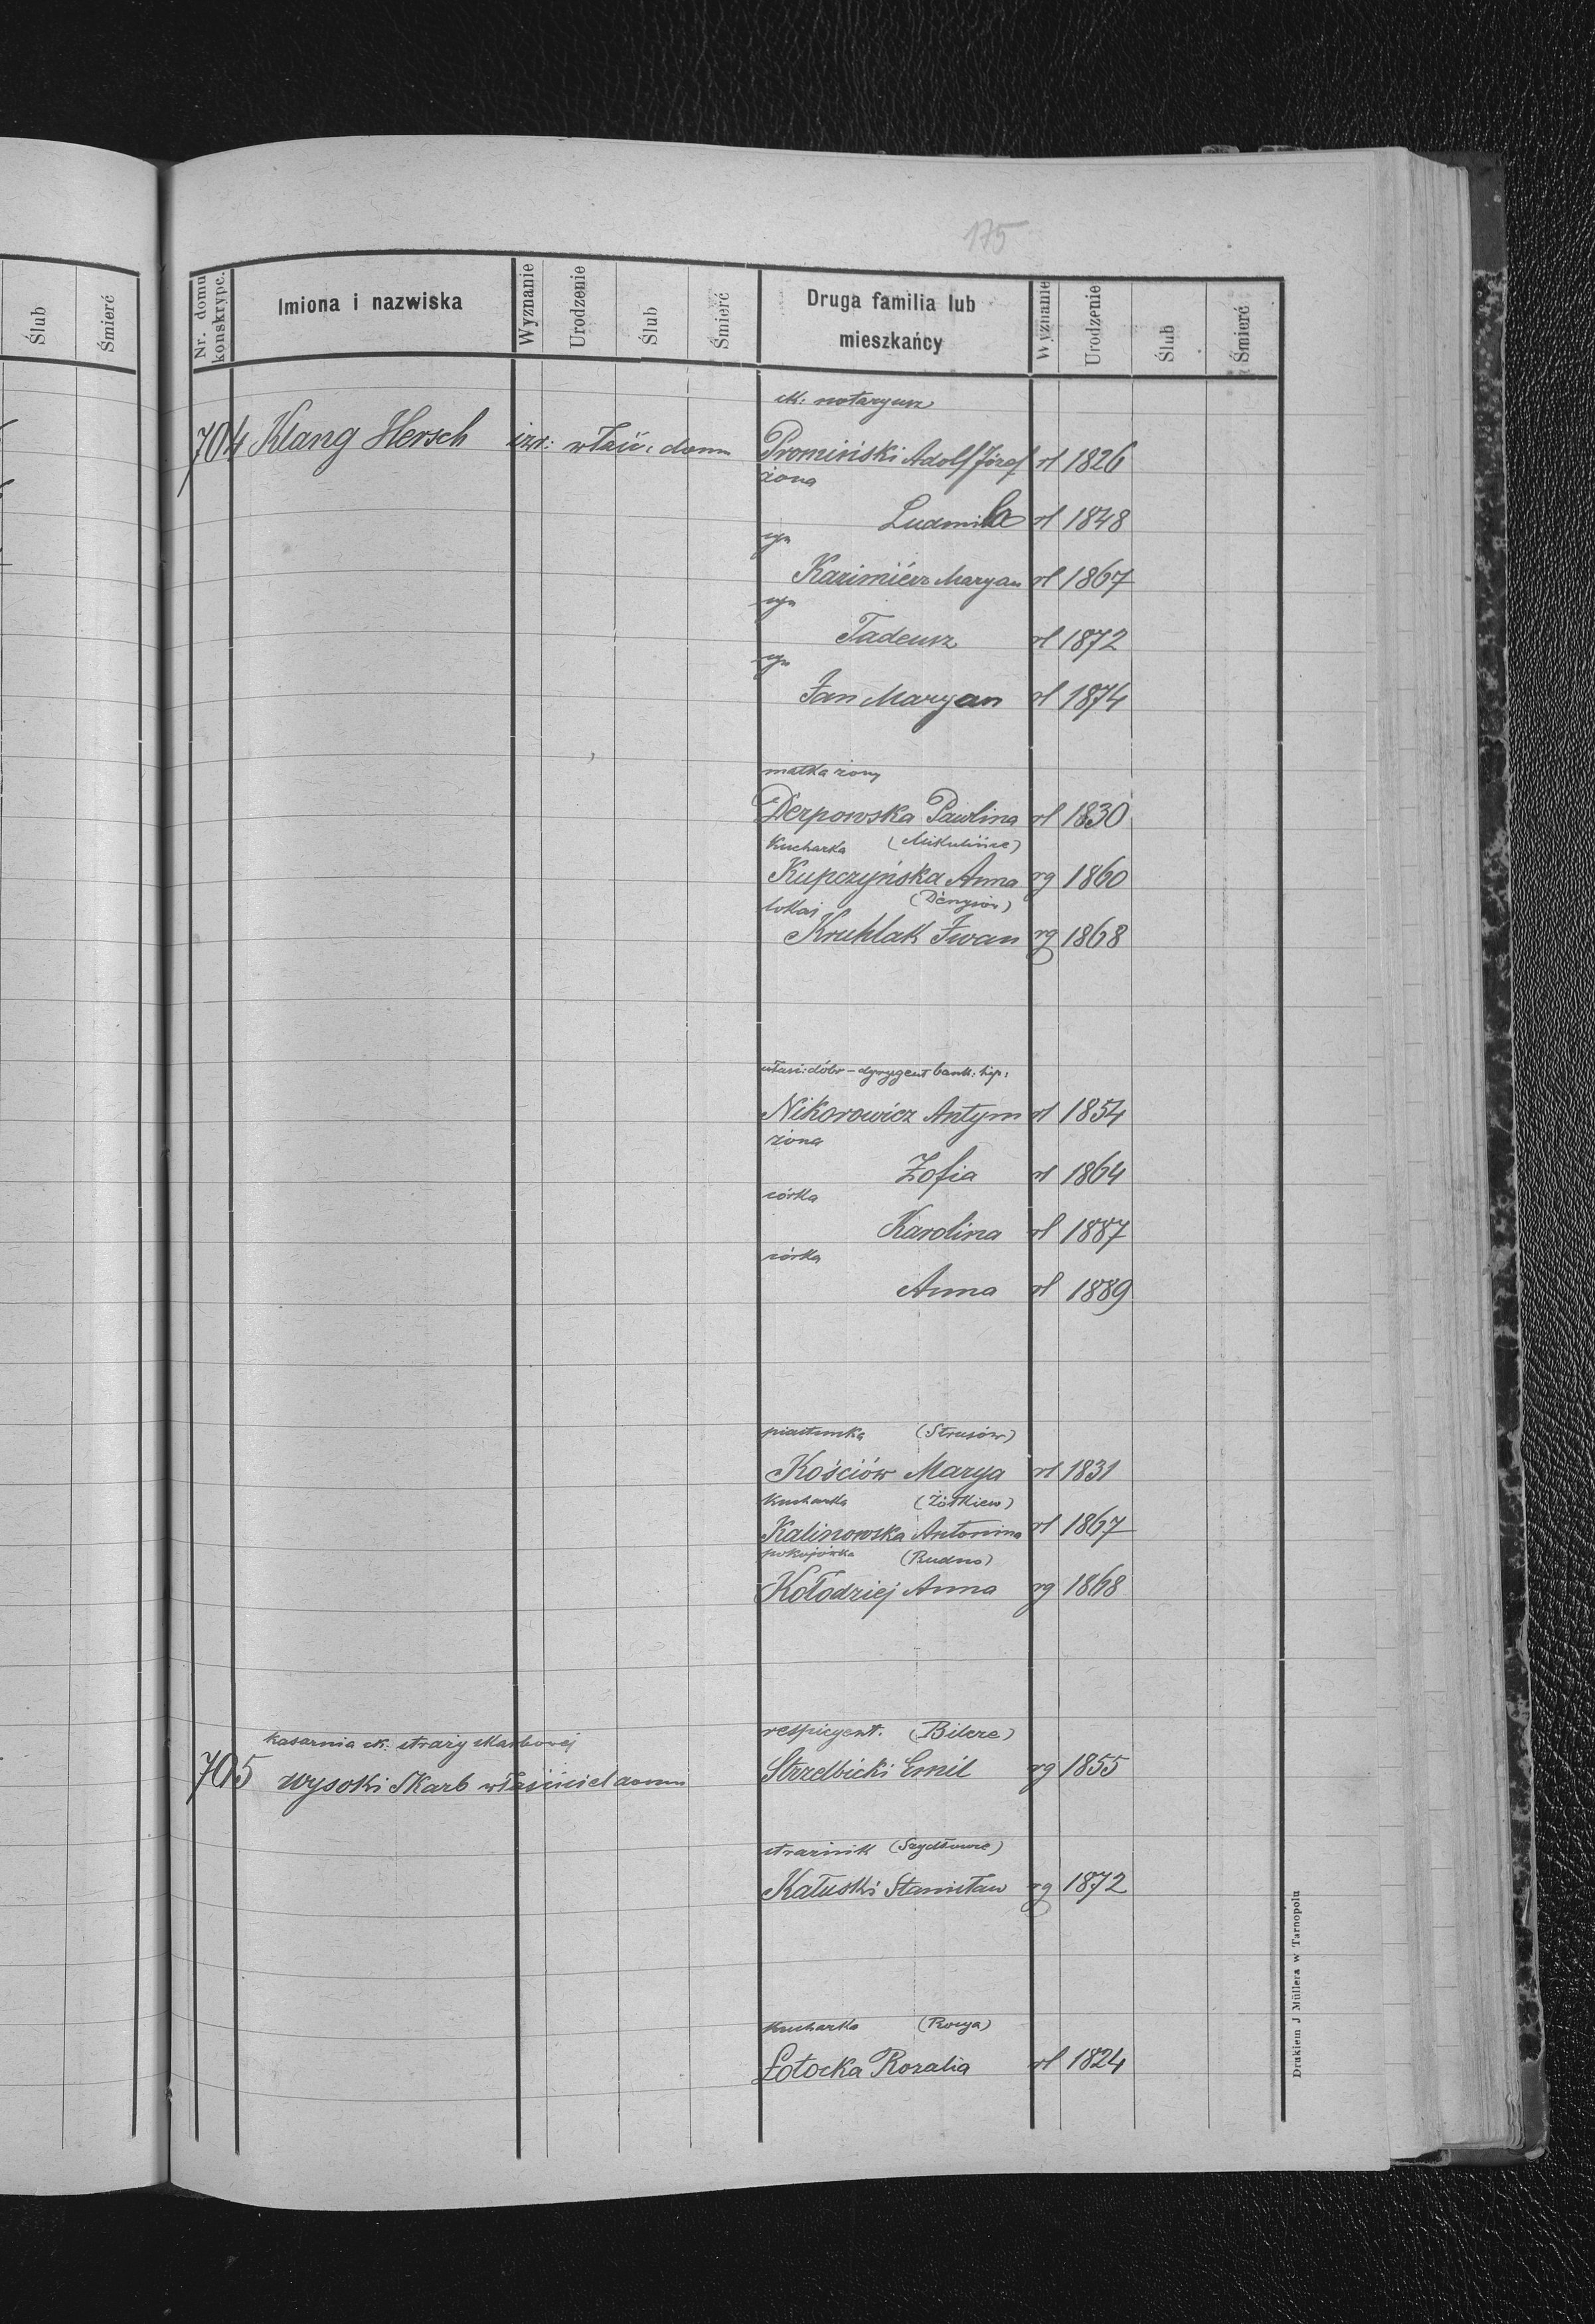 175
Ślub
Śmierć
Nr. domu konskrypc.
Imiona i nazwiska
Wyznanie
Urodzenie
Ślub
Śmierć
Druga familia lub
mieszkańcy
Wyznanie
Urodzenie
Ślub
Śmierć
ck: notaryusz
704 Klang Hersch izr: właść: domu Promiński Adolf Józef rł 1826
żona
Ludmila rł 1848
syn
Kazimiérz Maryan rł 1867
syn
Tadeusz rł 1872
syn
Jan Maryan rł 1874
matka żony
Derpowska Pawlina rł 1830
Kucharka (Mikulińce)
Kupczyńska Anna rg 1860
lokaj (Denysów)
Kruhlak Iwan rg 1868
właśc: dóbr - dyrygent bank: hip:
Nikorowicz Antym rł 1854
żona
Zofia rł 1864
córka
Karolina rł 1887
córka
Anna rł 1889
piastunka (Strusów)
Kośćiów Marya rł 1831
Kucharka (Żółkiew)
Kalinowska Antonina rł 1867
pokojówka (Rudno)
Kołodziej Anna rg 1868
kasarnia ck: straży skarbowéj
respicyent. (Bilcze)
705 wysoki Skarb właściciel domu
Strzelbicki Emil rg 1855
strażnik (Szydłowce)
Kałuski Stanisław rg 1872
Kucharka
Łotocka Rozalia rł 1824
Drukiem J Müllera w Tarnopolu